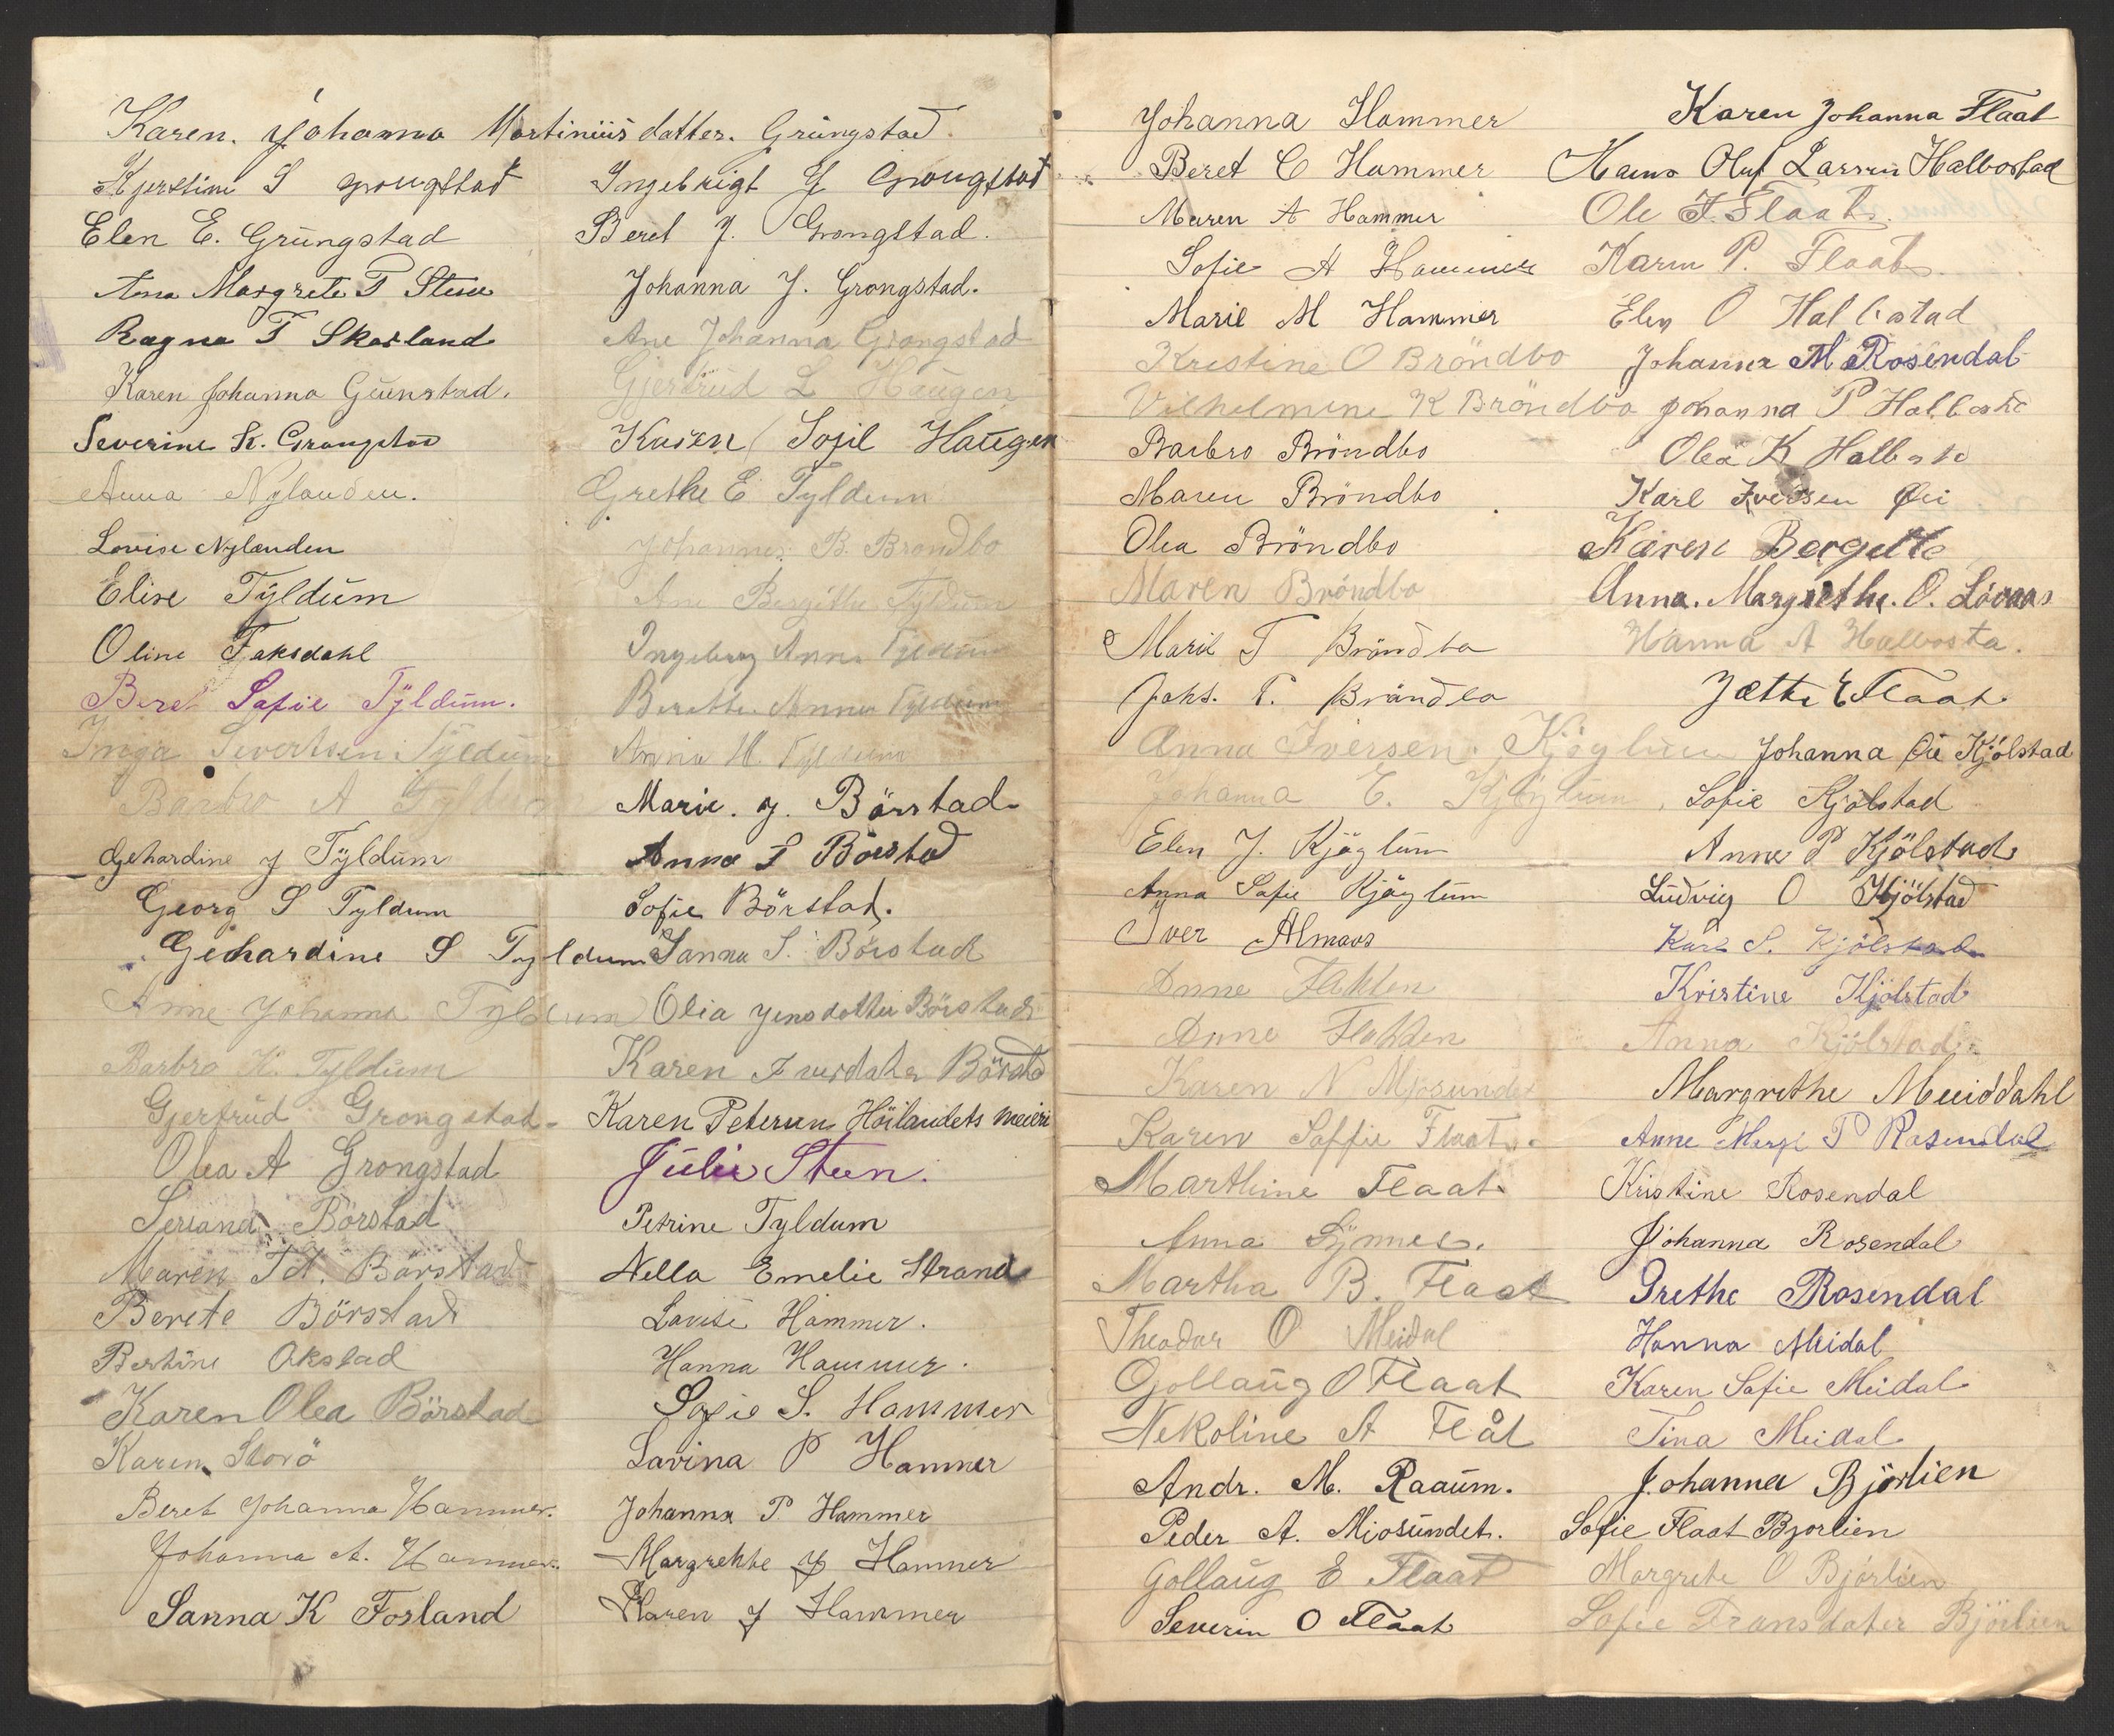 Karen. Johanna Martiniüsdatter. Grüngstad.
Kjerstine S Grougstad
Elen E. Grüngstad
Ana Margrete P Steen
Ragna T Skarland
Karen Johanna Geünstad.
Severine K. Grongstad
Anna Nylanden.
Lovise Nylanden
Elise Tÿldüm
Oline Faksdahl
Beret Sofie Tÿldüm.
Inga Sivertsen Tÿldüm
Barbro A Tyldum
Gehardine J Tÿldüm
Georg S Tyldum
Gerhardine S Tyldum
Anne Johanna Tyldum
Barbro K. Tyldüm
Gjertrüd Grongstad
Olea A Grongstad
Börstad
Maren Börstad
Berete Börstad
Bertine Okstad
Karen Olea Börstad
Karen Storö
Beret Johanna Hammer.
Johanna A. Hammer.
Sanna K Forland
Ingebrigt J Grougstad
Beret J. Grongstad.
Johanna J. Grongstad.
Ane Johanna Grongstad
Gjertrüd L Haügen
Karen Sofil Haügen
Grethe E Tyldum
Johannes B. Brondbo
Ane Bergitte Tyldüm
Ingeborg Anna Tyldüm
Berette Anna Tyldum
Anna H. Tyldum
Marie. J. Börstad
Anna P Börstad
Sofie Börstad.
Sanna S. Börstad
Olia Jensdatter Börstad
Karen Iversdater Börstad
Karen Petersen Höilandets meieri
Jülie Steen.
Petrine Tyldum
Nella Emelie Strand
Lovise Hammer.
Hanna Hammer.
Sofie S. Hammer
Lavina P Hammer
Johanna P Hammer
Margrehte J Hammer
Karen J Hammer
Johanna Hammer
Beret C Hammer
Maren A Hammer
Sofie A Hammer
Marie M Hammer
Kristine O Bröndbo
Vilhelmine K Bröndbo
Barbro Bröndbo
Maren Bröndbo
Olea Bröndbo
Maren Bröndbo
Marit T Bröndbo
Johs. P. Bröndbo
Anna Iversen Kjöglum
Johanna E. Kjöglum
Elen J. Kjöglüm
Anna Sofie Kjöglüm
Iver Almaas
Anne Flahlen
Anne Flahden
Karen N Mjosundet
Karen Soffie Flaat
Marthine Flaat
Anna Lÿnnes.
Martha B. Flaat
Theodor O Meidal
Gollaüg O Flaat
Nekoline A Flåt
Andr. M. Raaüm.
Peder A. Miosündet.
Gollaüg E Flaat
Severin O Flaat
Karen Johanna Flaat
Hans Oluf Larsen Halbostad
Ole F. Flaat
Karen P. Flaat
Elen O Halbostad
Johanna M Rosendal
Johanna P Halbosta
Olea K Halbosta
Karl Iversen Øie
Karen Bergitte
Anna. Margrethe. O. Lövaas
Hanna A Halbosta.
Jætte E Flaat
Johanna Øie Kjölstad
Sofie Kjölstad
Anne P Kjölstad
Lüdvig O Kjölstad
Karl S. Kjölstad
Kristine Kjölstad
Anna Kjölstad
Margrethe Meiddahl
Anne Margr P Rosendal
Kristine Rosendal
Johanna Rosendal
Grethe Rosendal
Hanna Meidal
Karen Sofie Meidal
Tina Meidal
Johanna Björlien
Sofie Flaat Bjorlien
Margrete O Björlien
Sofie Fransdater Björlien